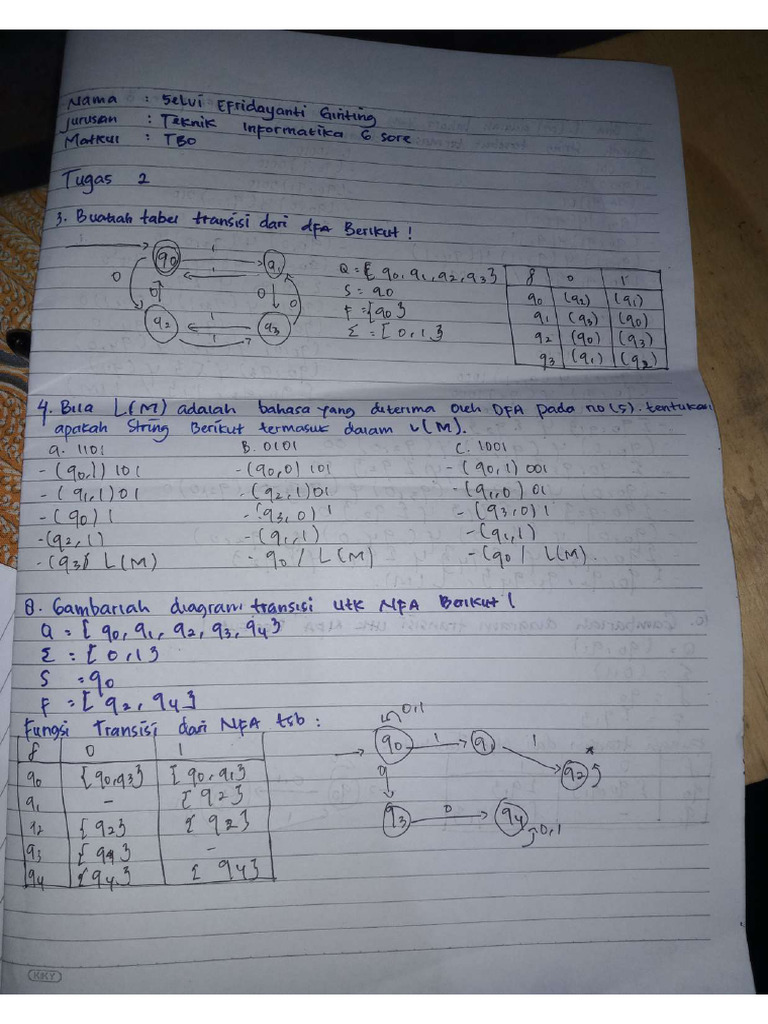 Nama : Selvi Efridayanti Ginting
Jurusan : Teknik Informatika 6 sore
Matkul : TBO
Tugas 2
3. Buatlah tabel transisi dari dfA Berikut !
q0 1 1 q1
0 0 0 0
q2 1 1 q3
Q = {q0, q1, q2, q3}
S = q0
F = {q0}
Σ = {0,1}
δ 0 1
q0 (q2) (q1)
q1 (q3) (q0)
q2 (q0) (q3)
q3 (q1) (q2)
4. Bila L(M) adalah bahasa yang diterima oleh DFA pada no(5). tentukan
apakah String Berikut termasuk dalam L(M).
a. 1101 B. 0101 C. 1001
- (q0,1) 101 - (q0,0) 101 - (q0,1) 001
- (q1,1) 01 - (q2,1) 01 - (q1,0) 01
- (q0) 1 - (q3,0) 1 - (q3,0) 1
- (q2,1) - (q1,1) - (q1,1)
- (q3/ L(M) - q0 / L(M) - (q0 / L(M).
8. Gambarlah diagram transisi utk NFA Berikut !
Q = {q0, q1, q2, q3, q4}
Σ = {0,1}
S = q0
F = {q2, q4}
Fungsi Transisi dari NFA tsb :
δ 0 1
q0 {q0,q3} {q0,q1}
q1 - {q2}
q2 {q2} {q2}
q3 {q4} -
q4 {q4} {q4}
0,1
q0 1 q1 1 q2
q3 0 q4
0,1
KKY